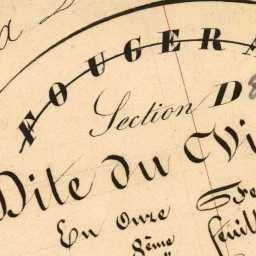 FOUGERA
Section D
Dite du Vi
En Onze Fe
8ème feuill